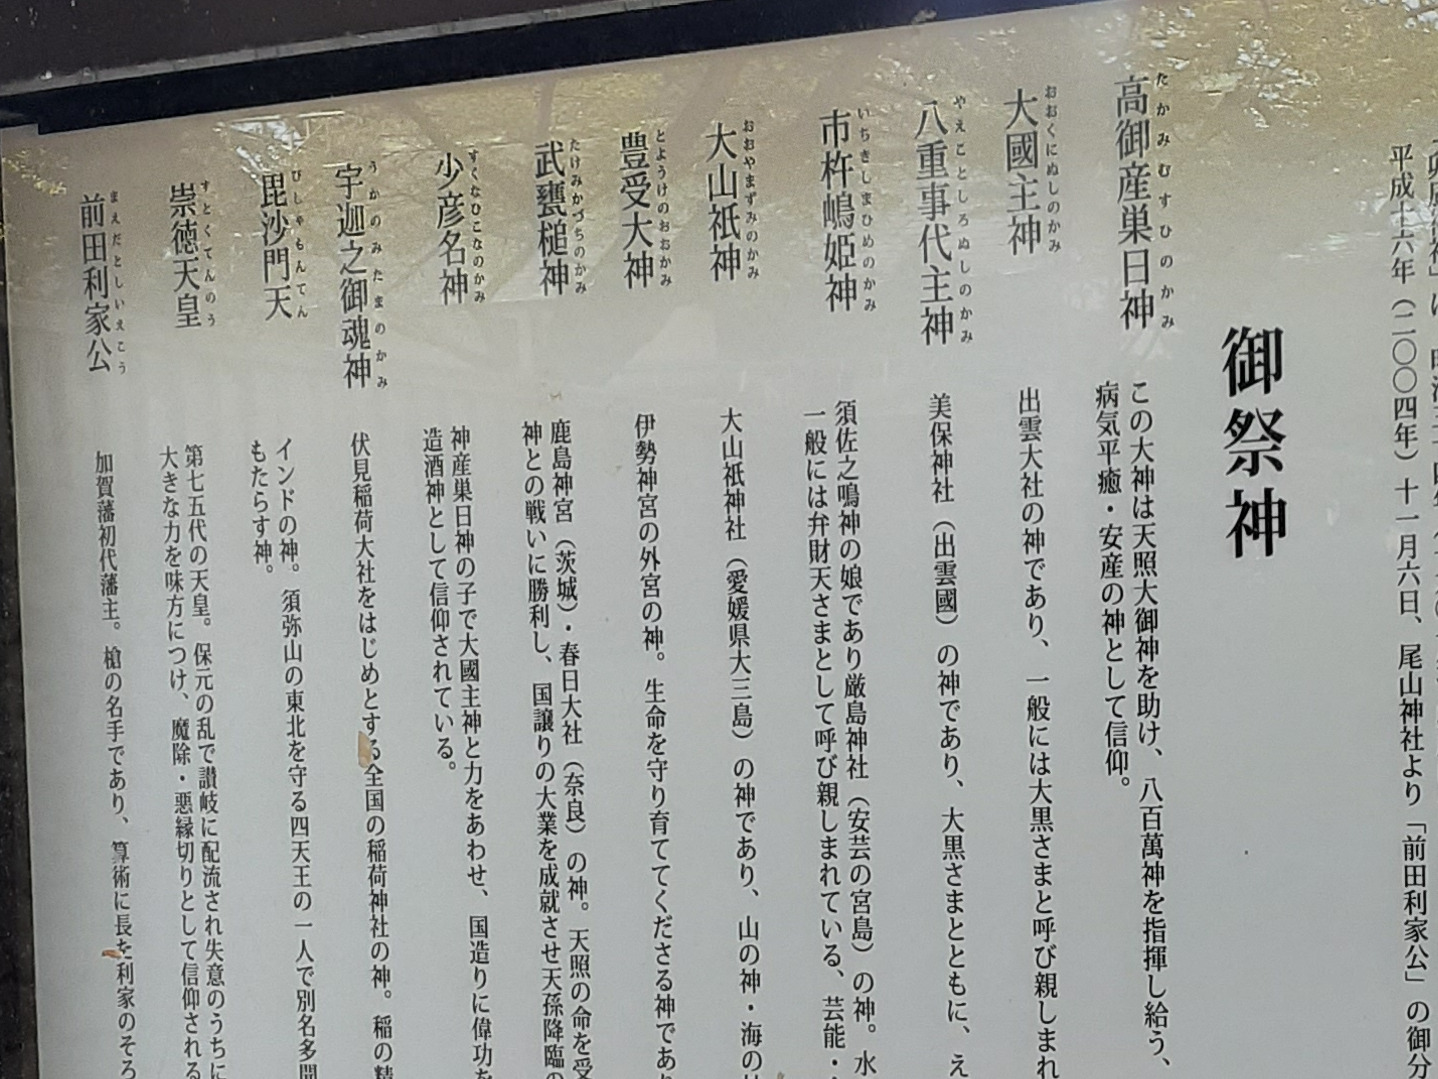 平成十六年（二〇〇四年）十一月六日、尾山神社より「前田利家公」の御分
御祭神
たかみむすひのかみ
高御産巣日神
この大神は天照大御神を助け、八百萬神を指揮し給う、
病気平癒・安産の神として信仰。
おおくにぬしのかみ
大國主神
出雲大社の神であり、一般には大黒さまと呼び親しまれ
やえことしろぬしのかみ
八重事代主神
美保神社（出雲國）の神であり、大黒さまとともに、え
いちきしまひめのかみ
市杵嶋姫神
須佐之鳴神の娘であり厳島神社（安芸の宮島）の神。水
一般には弁財天さまとして呼び親しまれている、芸能・
おおやまずみのかみ
大山祇神
大山祇神社（愛媛県大三島）の神であり、山の神・海の
とようけのおおかみ
豊受大神
伊勢神宮の外宮の神。生命を守り育ててくださる神であり
たけみかづちのかみ
武甕槌神
鹿島神宮（茨城）・春日大社（奈良）の神。天照の命を受
神との戦いに勝利し、国譲りの大業を成就させ天孫降臨の
すくなひこなのかみ
少彦名神
神産巣日神の子で大國主神と力をあわせ、国造りに偉功を
造酒神として信仰されている。
うかのみたまのかみ
宇迦之御魂神
伏見稲荷大社をはじめとする全国の稲荷神社の神。稲の精
びしゃもんてん
毘沙門天
インドの神。須弥山の東北を守る四天王の一人で別名多聞
もたらす神。
すとくてんのう
崇徳天皇
第七五代の天皇。保元の乱で讃岐に配流され失意のうちに
大きな力を味方につけ、魔除・悪縁切りとして信仰される
まえだとしいえこう
前田利家公
加賀藩初代藩主。槍の名手であり、算術に長た利家のそろ